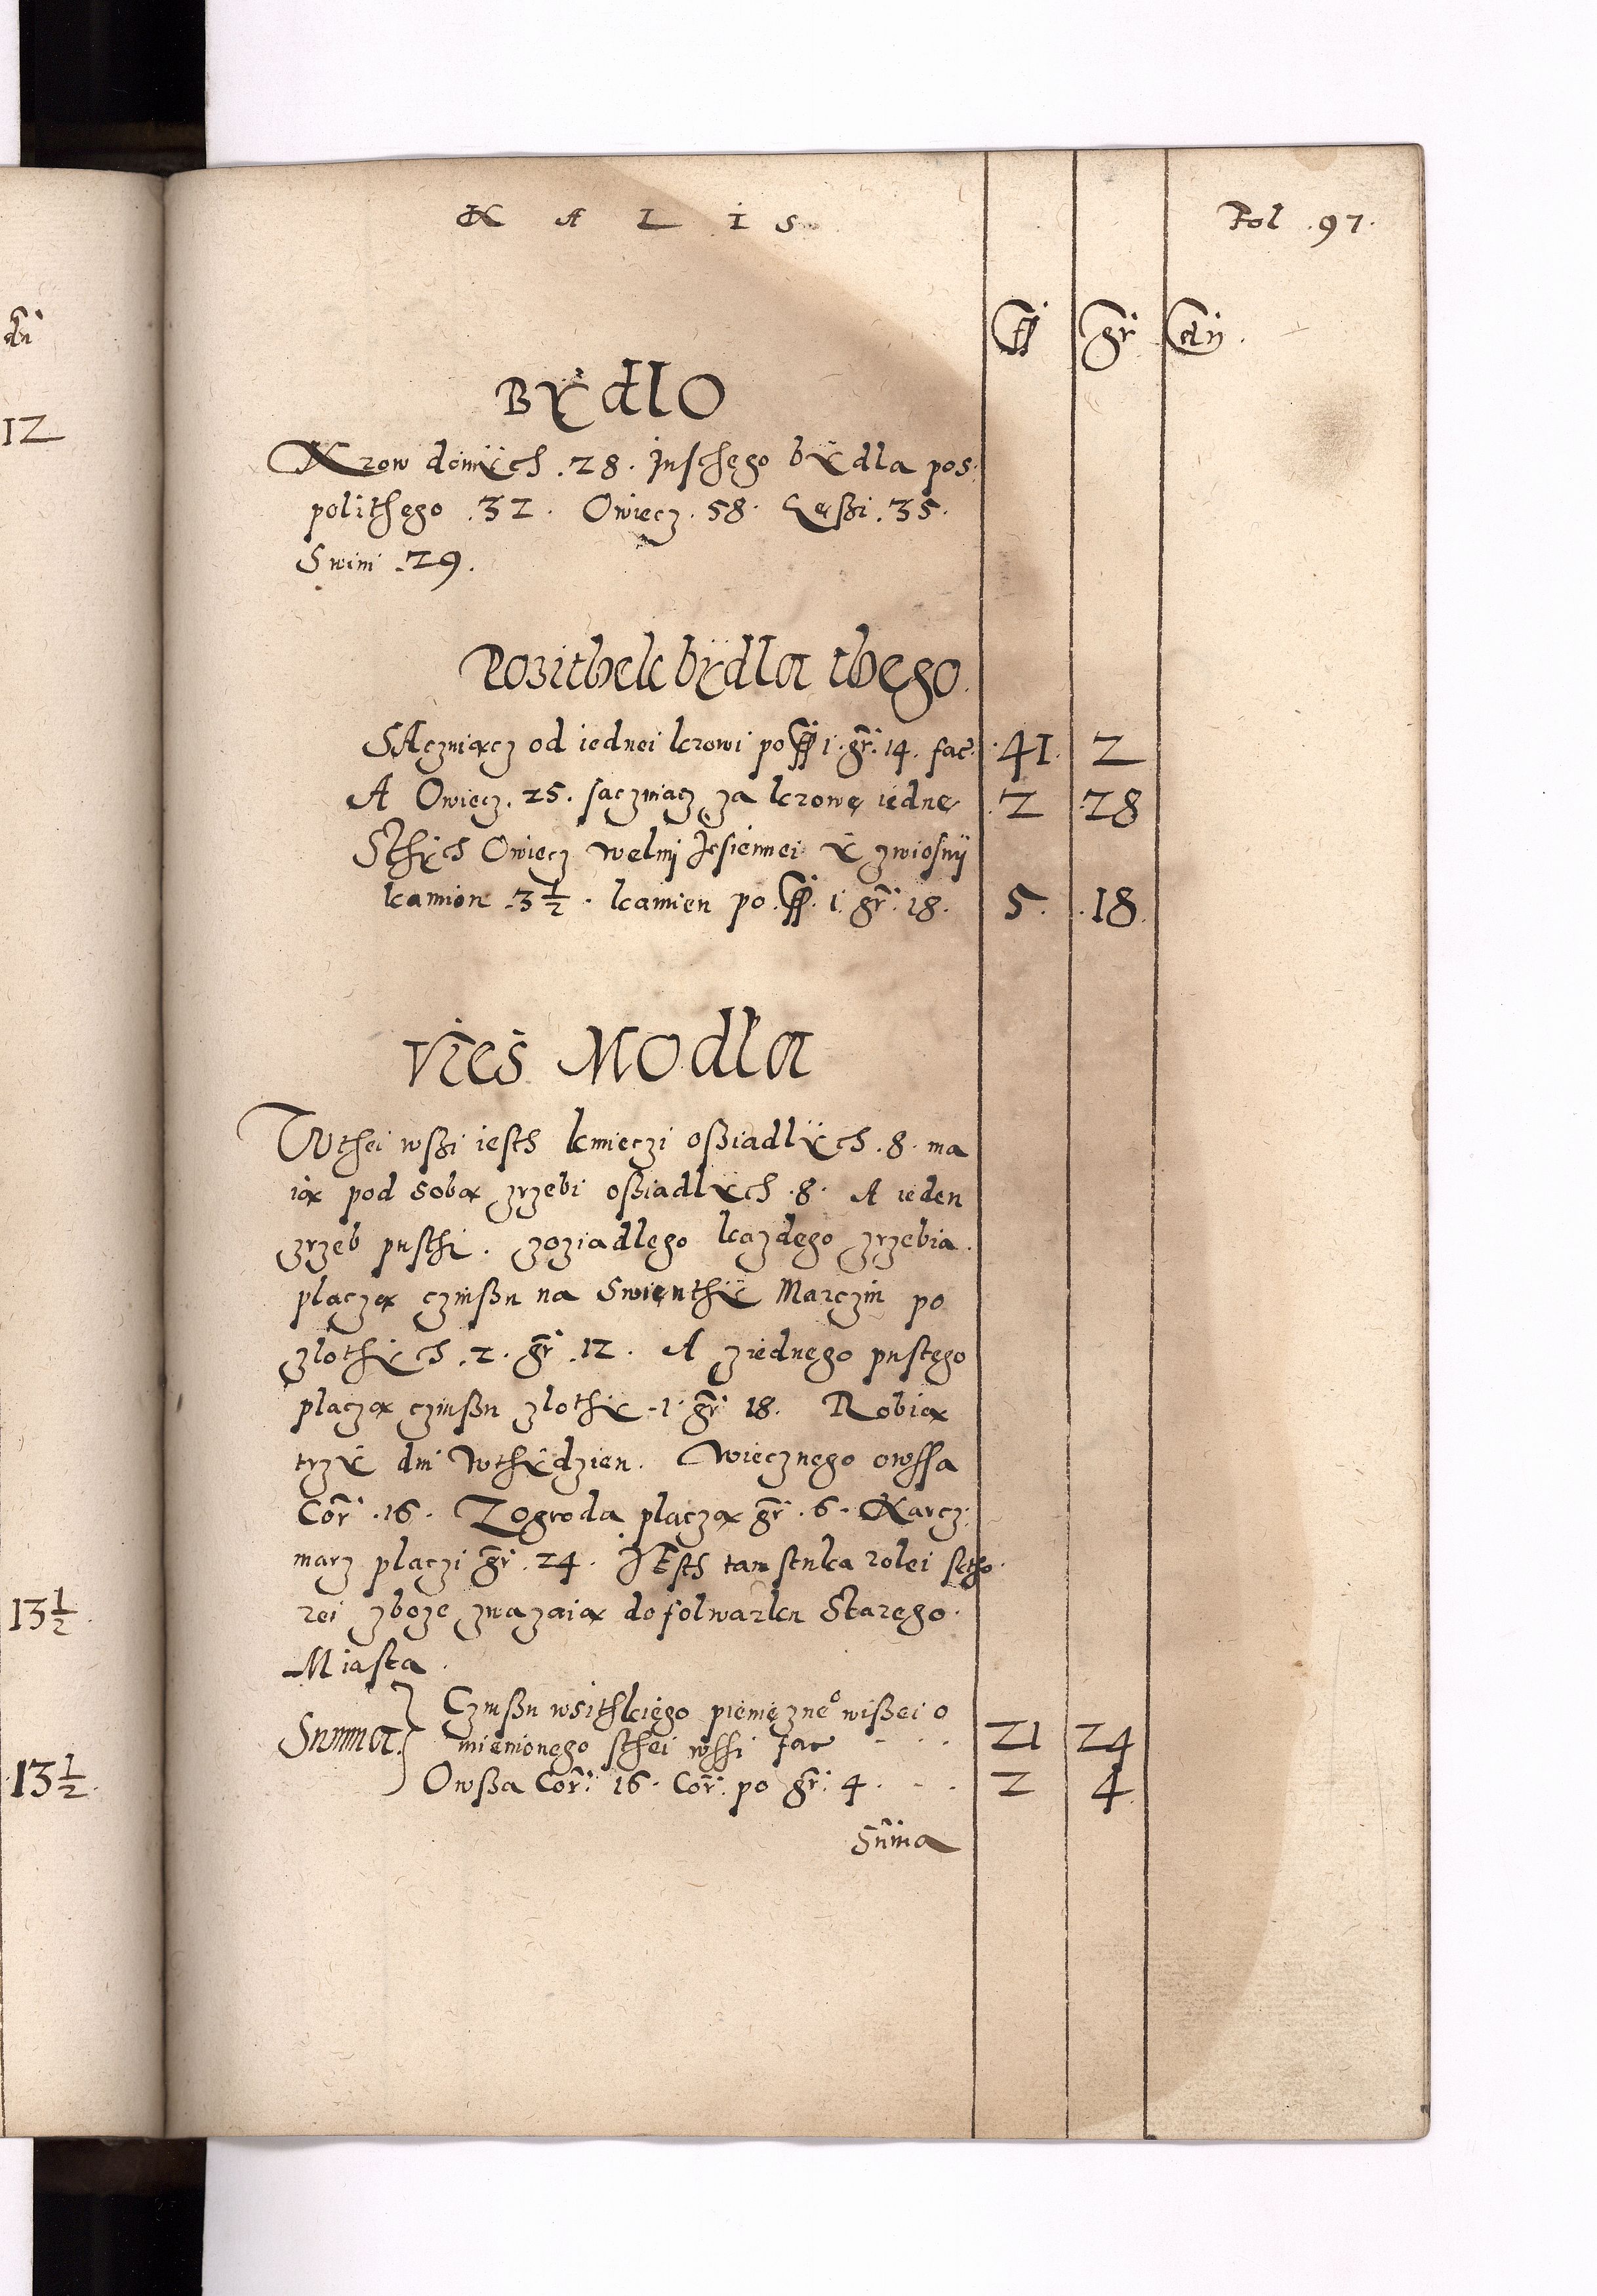 K A L I S
Fol .97.
ff gr dn.
dn
12
BYdlO
Krow doinÿch .28. Jnschego bÿdla pos:
polithego .32. Owiecz .58. Geßi .35.
Swini .29.
Pozithek bÿdla thego.
SAczniącz od iednei krowi po ff 1. gr: 14. fac: 41. 2
A Owiecz .25. saczniącz za krowę iednę .2 28
Sthÿch Owiecz welnÿ Jesiennei ÿ zwiosnÿ
kamion .3½. kamien po ff. 1. gr: 18. 5. 18.
Vies Modla
Wthei wßi iesth kmieczi oßiadlÿch .8. ma
ią pod sobą zrzebi oßiadlÿch .8. A ieden
zrzeb pusthÿ. zoziadlego kazdego zrzebia.
placzą czinßu na Swienthÿ Marczin po
zlothÿch .2. gr .12. A ziednego pustego
placzą czinßu zlothÿ .1. gr 18. Robią
trzÿ dni Wthÿdzien. Wiecznego owssa
Cor .16. Zogroda placzą gr .6. Karcz:
marz placzi gr .24. JEsth tam stuka rolei sctho
rei zboze zwazaią do folwarku Starego
13½.
Miasta.
Summa. Czinßu wsithkiego pieniężne° wißei o
mienionego sthei wssi fac - . . . 21 24
13½.
Owßa Cor: 16. Cor: po gr: 4. - . 2 4.
Suma